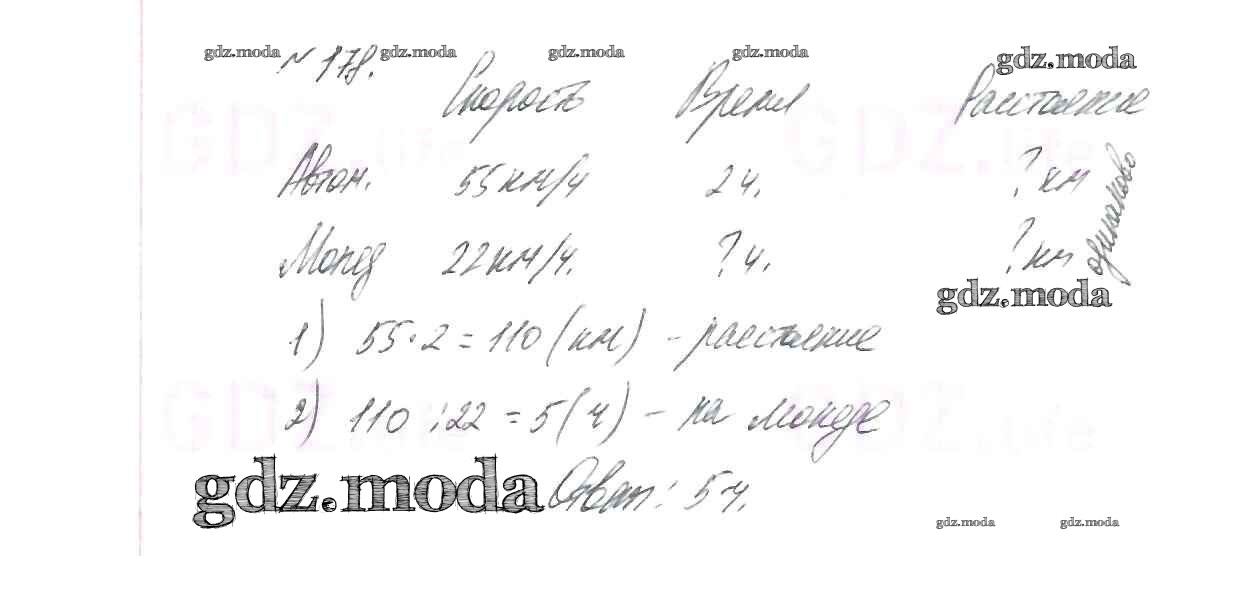 gdz.moda gdz.moda gdz.moda gdz.moda gdz.moda
№ 178.
Скорость Время Расстояние
GDZ.life GDZ.life
Автом. 55 км/ч 2 ч. ? км
Мопед 22 км/ч. ? ч. ? км
одинаково
gdz.moda
1) 55·2=110 (км) - расстояние
GDZ.life GDZ.life
2) 110:22=5(ч) - на мопеде
gdz.moda Ответ: 5 ч.
gdz.moda gdz.moda